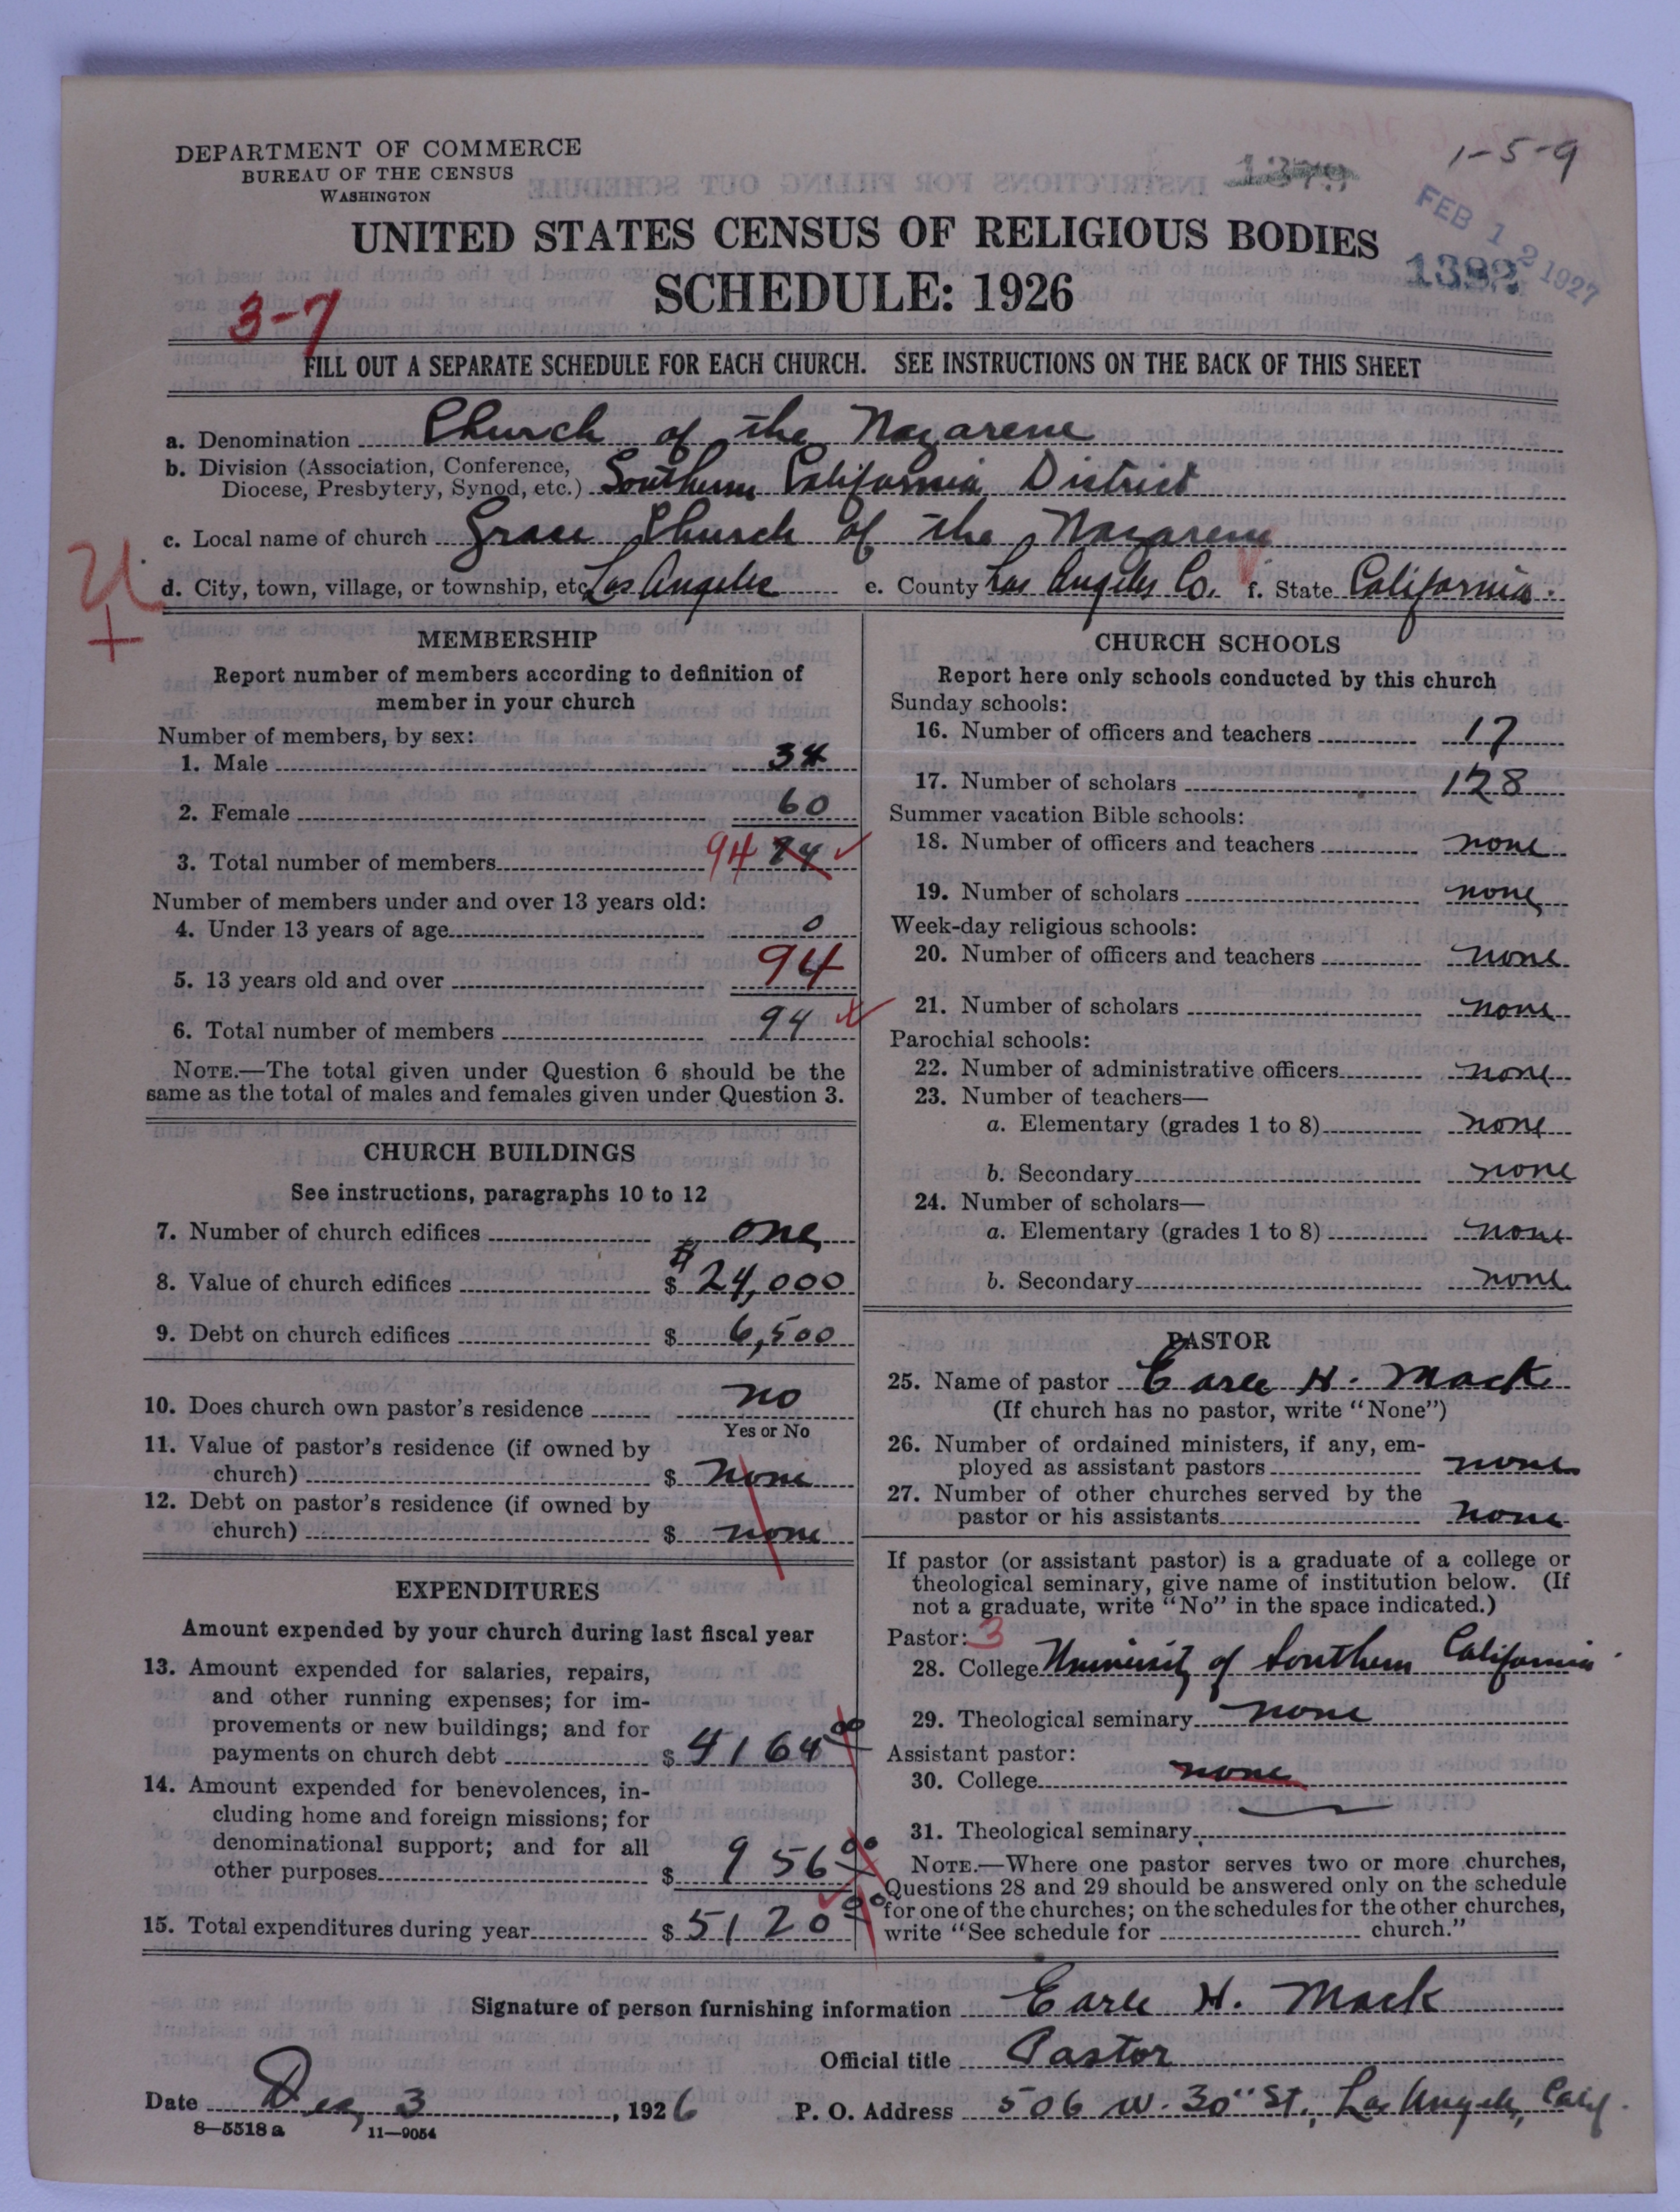 DEPARTMENT OF COMMERCE
BUREAU OF THE CENSUS
WASHINGTON
1-5-9
FEB 12 1927
1392
UNITED STATES CENSUS OF RELIGIOUS BODIES
SCHEDULE: 1926
3-7
FILL OUT A SEPARATE SCHEDULE FOR EACH CHURCH. SEE INSTRUCTIONS ON THE BACK OF THIS SHEET
a. Denomination Church of the Nazarene
b. Division (Association, Conference, Diocese, Presbytery, Synod, etc.) Southern California District
c. Local name of church Grace Church of the Nazarene
d. City, town, village, or township, etc. Los Angeles e. County Los Angeles Co. f. State California.
MEMBERSHIP
Report number of members according to definition of
member in your church
Number of members, by sex:
1. Male 34
2. Female 60
3. Total number of members 94
Number of members under and over 13 years old:
4. Under 13 years of age 0
5. 13 years old and over 94
6. Total number of members 94
NOTE.—The total given under Question 6 should be the
same as the total of males and females given under Question 3.
CHURCH BUILDINGS
See instructions, paragraphs 10 to 12
7. Number of church edifices one
8. Value of church edifices $ 24,000
9. Debt on church edifices $ 6,500
10. Does church own pastor's residence no
Yes or No
11. Value of pastor's residence (if owned by
church) $ none
12. Debt on pastor's residence (if owned by
church) $ none
EXPENDITURES
Amount expended by your church during last fiscal year
13. Amount expended for salaries, repairs,
and other running expenses; for im-
provements or new buildings; and for
payments on church debt $ 4164 00
14. Amount expended for benevolences, in-
cluding home and foreign missions; for
denominational support; and for all
other purposes $ 956 00
15. Total expenditures during year $ 5120 00
CHURCH SCHOOLS
Report here only schools conducted by this church
Sunday schools:
16. Number of officers and teachers 17
17. Number of scholars 128
Summer vacation Bible schools:
18. Number of officers and teachers none
19. Number of scholars none
Week-day religious schools:
20. Number of officers and teachers none
21. Number of scholars none
Parochial schools:
22. Number of administrative officers none
23. Number of teachers—
a. Elementary (grades 1 to 8) none
b. Secondary none
24. Number of scholars—
a. Elementary (grades 1 to 8) none
b. Secondary none
PASTOR
25. Name of pastor Earle H. Mack
(If church has no pastor, write "None")
26. Number of ordained ministers, if any, em-
ployed as assistant pastors none
27. Number of other churches served by the
pastor or his assistants none
If pastor (or assistant pastor) is a graduate of a college or
theological seminary, give name of institution below. (If
not a graduate, write "No" in the space indicated.)
Pastor: 3
28. College University of Southern California
29. Theological seminary none
Assistant pastor:
30. College none
31. Theological seminary
NOTE.—Where one pastor serves two or more churches,
Questions 28 and 29 should be answered only on the schedule
for one of the churches; on the schedules for the other churches,
write "See schedule for church."
Signature of person furnishing information Earle H. Mack
Official title Pastor
Date Dec, 3, 1926 P. O. Address 506 W. 30" St., Los Angeles, Calif.
8—5518 a 11—9054